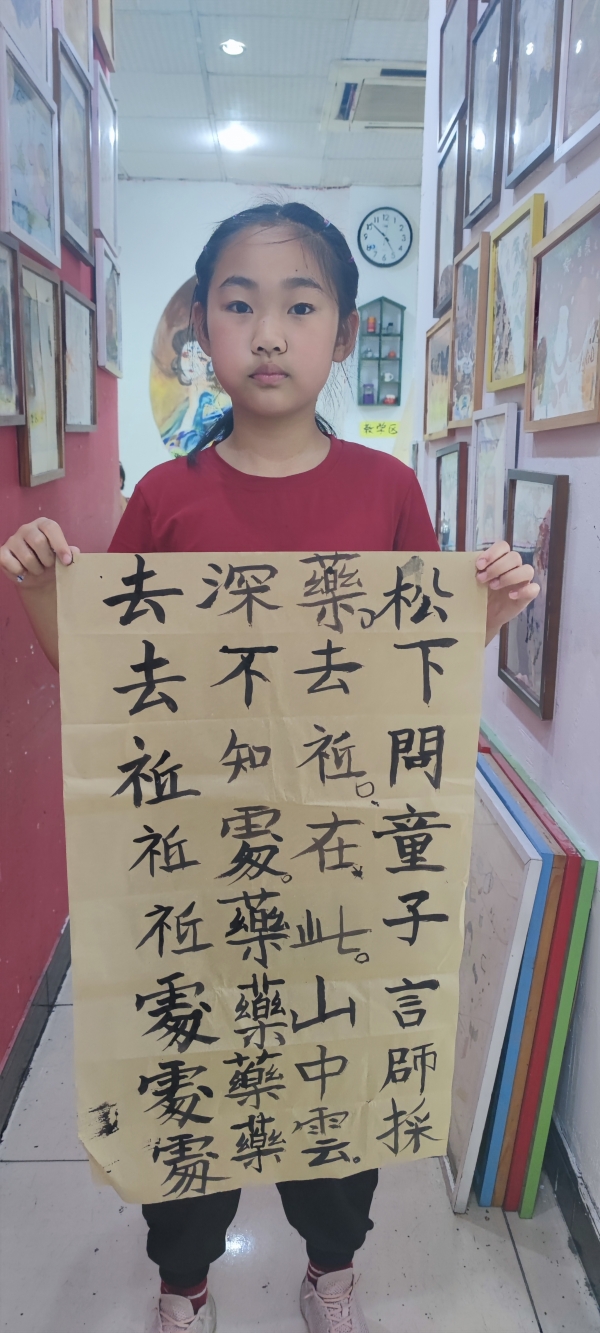 松下問童子言師採
藥去祗在此山中雲
深不知處藥藥藥藥
去去祗祗祗處處處